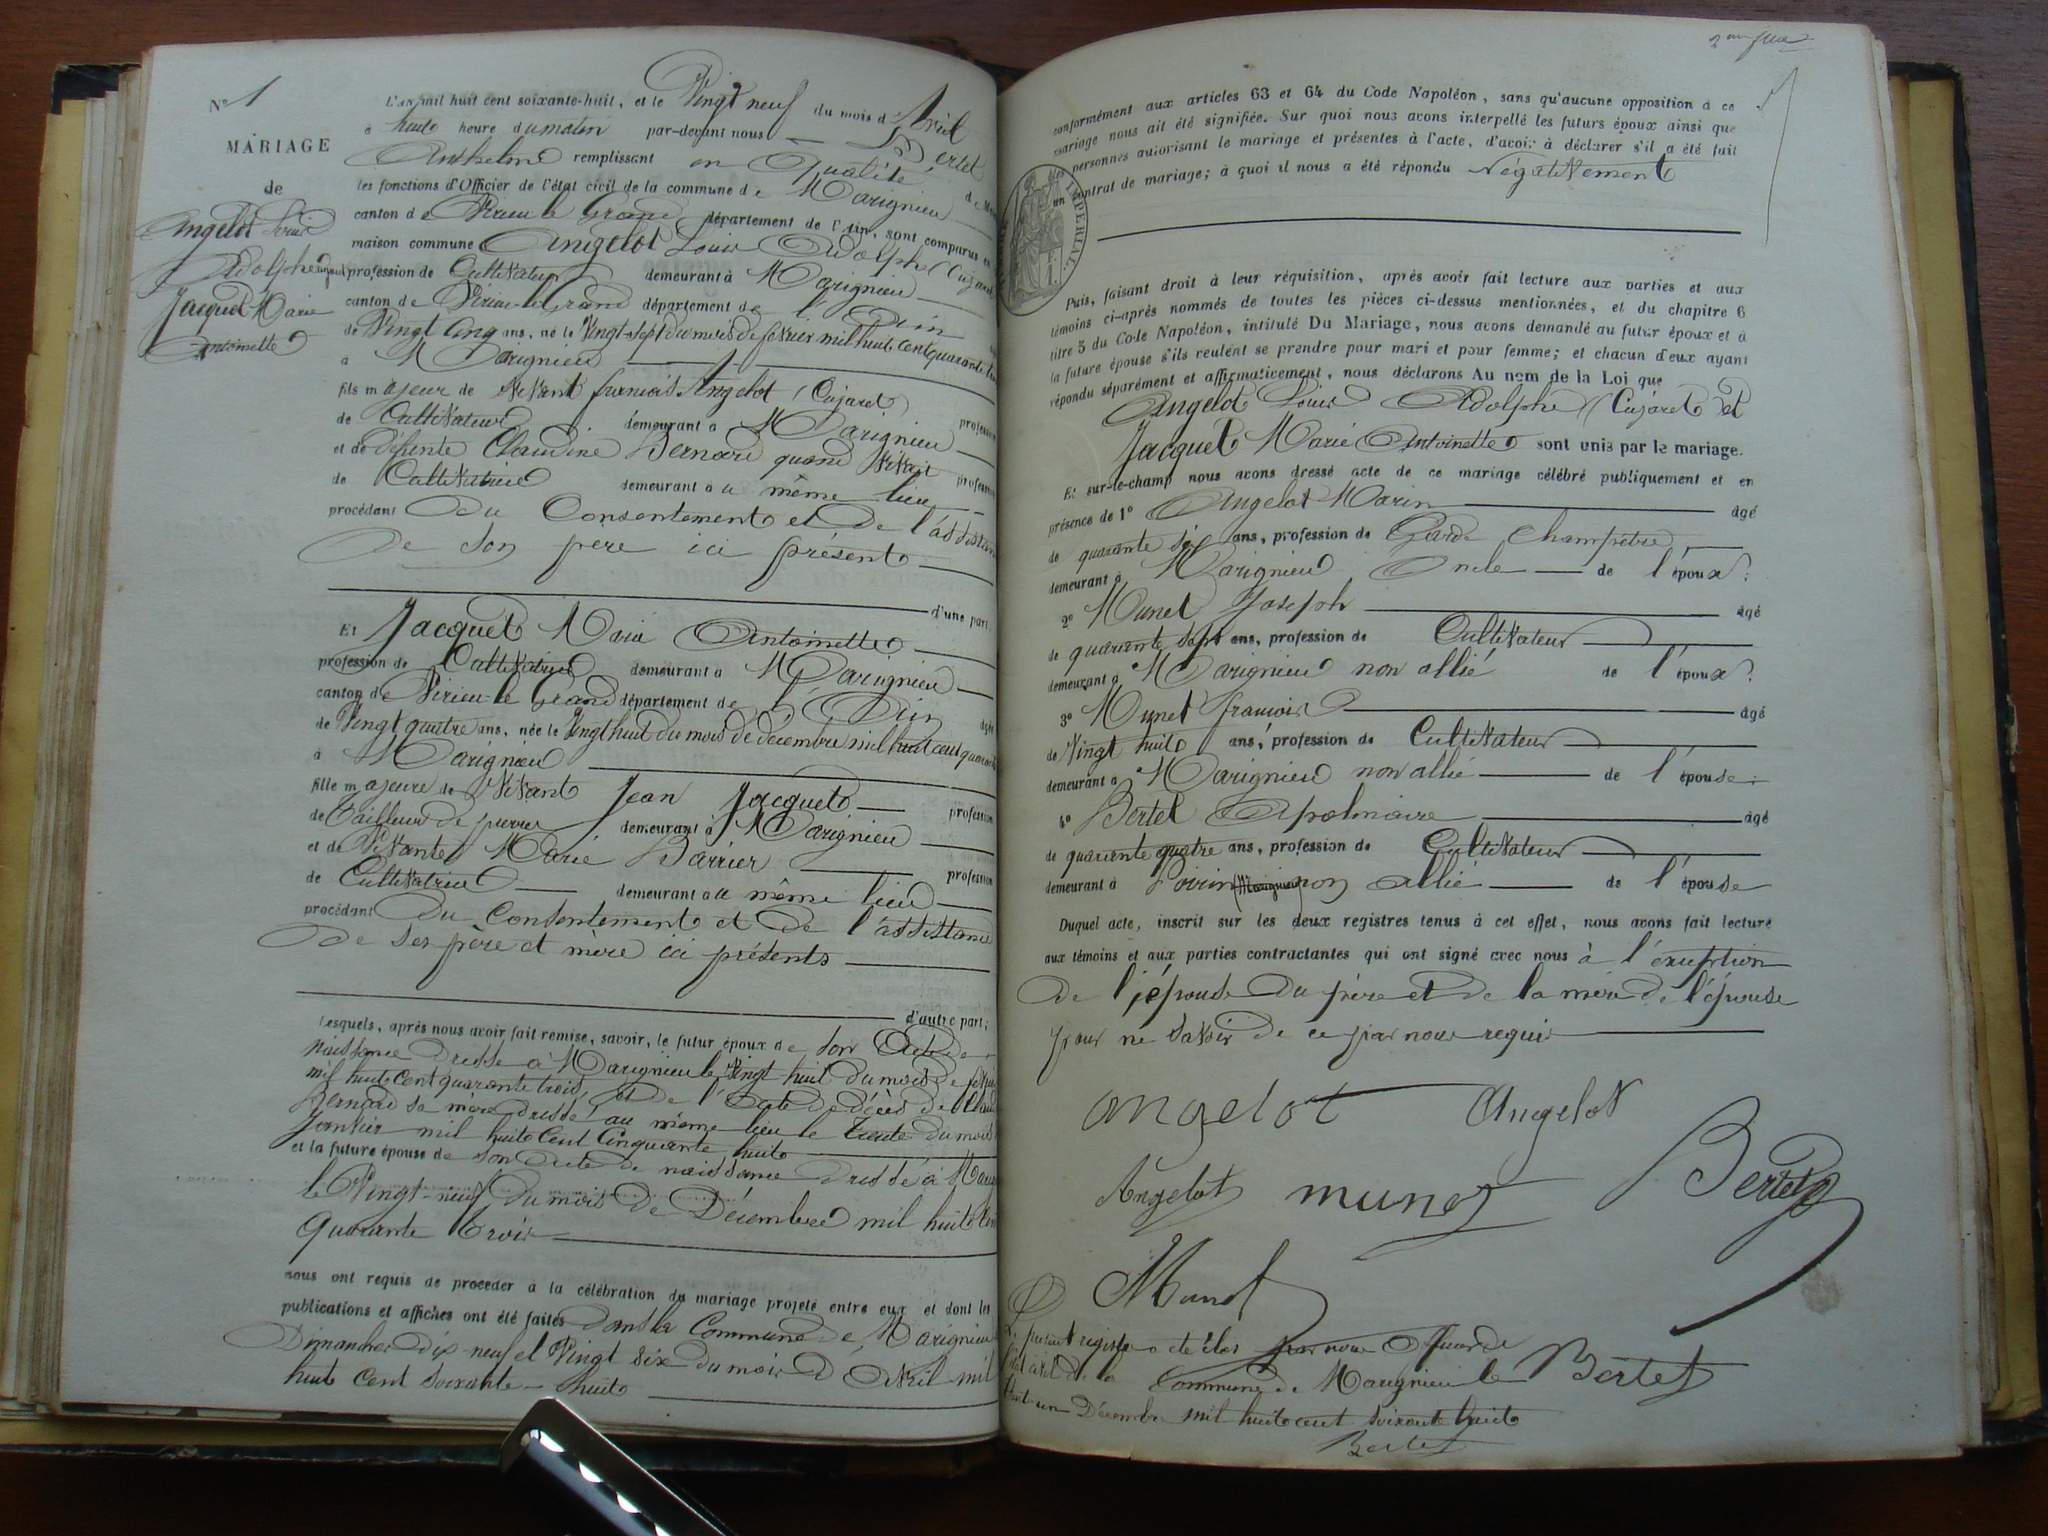 N° 1
MARIAGE
de
Angelot Louis
Adolphe
Jacquet Marie
antoinette
L'an mil huit cent soixante-huit, et le Vingt neuf du mois d'Avril
à huit heure du matin par-devant nous Bertet
Anthelme remplissant en Qualité de Maire
les fonctions d'Officier de l'état civil de la commune de Marignieu
canton de Virieu le Grand département de l'Ain, sont comparus en
maison commune Angelot Louis Adolphe (Cujaret
profession de Cultivateur demeurant à Marignieu
canton de Virieu-le-Grand département de l'Ain
de Vingt Cinq ans, né le Vingt-sept du mois de fevrier mil huit cent quarante trois
à Marignieu
fils majeur de vivant francois Angelot (Cujaret) profession
de Cultivateur demeurant à Marignieu
et de défunte Claudine Bernard quand vivait profession
de Cultivatrice demeurant au même lieu
procédant du Consentement et de l'assistance
de son pere ici présent
d'une part.
Et Jacquet Marie Antoinette
profession de Cultivatrice demeurant à Marignieu
canton de Virieu-le Grand département de l'Ain agée
de Vingt quatre ans, née le Vingt huit du mois de décembre mil huit cent quarante
à Marignieu
fille majeure de vivant Jean Jacquet profession
de Tailleur de pierre demeurant à Marignieu
et de Vivante Marie Barrier profession
de Cultivatrice demeurant au même lieu
procédant du Consentement et de l'assistance
de ses père et mère ici présents
d'autre part;
Lesquels, après nous avoir fait remise, savoir, le futur époux de son Acte de
naissance dressé à Marignieu le Vingt huit du mois de fevrier
mil huit cent quarante trois, et de l'acte de décès de Claudine
Bernard sa mère dressé au même lieu le trente du mois
Janvier mil huit cent Cinquante huit
et la future épouse de son acte de naissance dressé à Marignieu
le Vingt-neuf du mois de Décembre mil huit cent
quarante trois
nous ont requis de procéder à la célébration du mariage projeté entre eux et dont les
publications et affiches ont été faites dans la Commune de Marignieu
Dimanches dix-neuf et Vingt six du mois d'Avril mil
huit cent soixante-huit
conformément aux articles 63 et 64 du Code Napoléon, sans qu'aucune opposition à ce
mariage nous ait été signifiée. Sur quoi nous avons interpellé les futurs époux ainsi que
les personnes autorisant le mariage et présentes à l'acte, d'avoir à déclarer s'il a été fait
un contrat de mariage; à quoi il nous a été répondu Négativement
IMPERIAL
Puis, faisant droit à leur réquisition, après avoir fait lecture aux parties et aux
témoins ci-après nommés de toutes les pièces ci-dessus mentionnées, et du chapitre 6
titre 5 du Code Napoléon, intitulé Du Mariage, nous avons demandé au futur époux et à
la future épouse s'ils veulent se prendre pour mari et pour femme; et chacun d'eux ayant
répondu séparément et affirmativement, nous déclarons Au nom de la Loi que
Angelot Louis Adolphe (Cujaret et
Jacquet Marie Antoinette sont unis par le mariage.
Et sur-le-champ nous avons dressé acte de ce mariage célébré publiquement et en
présence de 1° Angelot Marin âgé
de quarante six ans, profession de Garde Champêtre
demeurant à Marignieu Oncle de l'époux;
2° Munet Joseph âgé
de quarante sept ans, profession de Cultivateur
demeurant à Marignieu non allié de l'époux;
3° Munet francois âgé
de Vingt huit ans, profession de Cultivateur
demeurant à Marignieu non allié de l'épouse;
4° Bertet Apolinaire âgé
de quarante quatre ans, profession de Cultivateur
demeurant à (Marignieu) non allié de l'épouse
Duquel acte, inscrit sur les deux registres tenus à cet effet, nous avons fait lecture
aux témoins et aux parties contractantes qui ont signé avec nous à l'exception
de l'épouse du père et de la mère de l'épouse
pour ne savoir de ce par nous requis
angelot Angelot
Angelot munet Bertet
Munet
Le présent registre a été clos par nous Officier de
l'état civil de la Commune de Marignieu le Bertet
trente-un Décembre mil huit cent soixante huit
Bertet